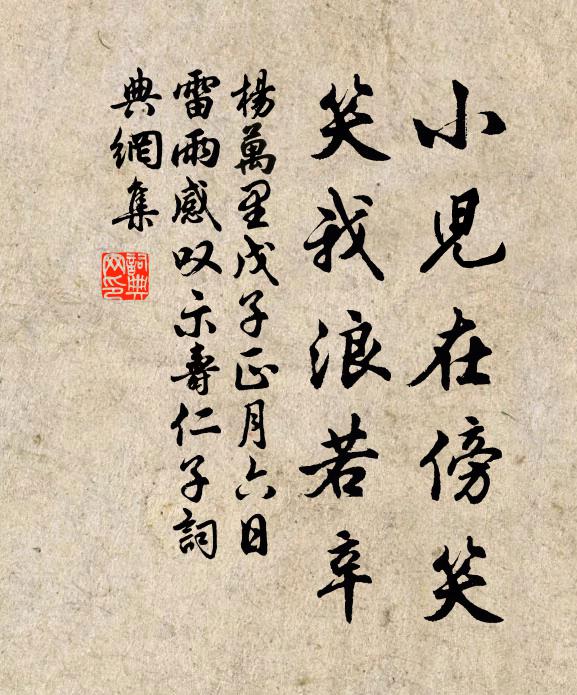 小児在傍笑
笑我浪若辛
楊萬里戊子正月六日
雷雨感叹示壽仁子詞
典網集
詞典
网印